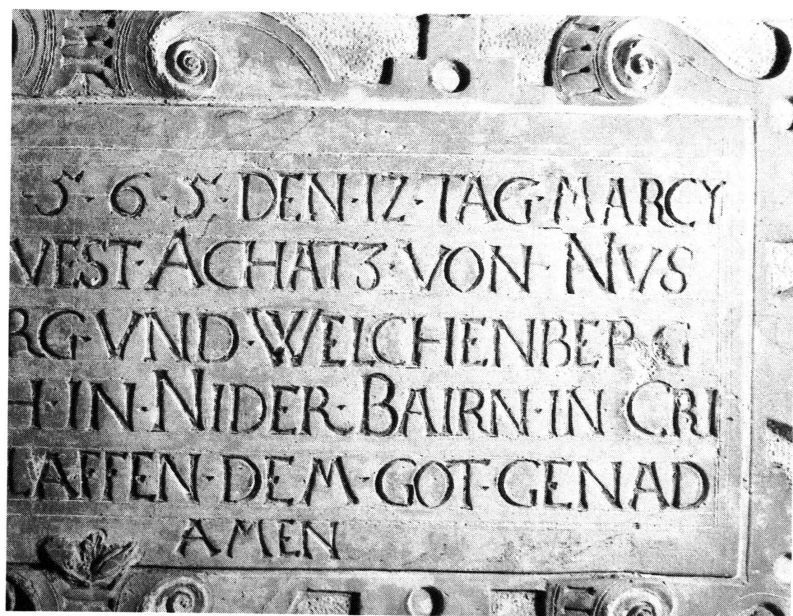 5·6·5·DEN·IZ·TAG·MARCY
VEST·ACHATZ·VON·NVS
RG·VND·WELCHENBERG
H·IN·NIDER·BAIRN·IN CRI
LAFFEN·DEM·GOT·GENAD
AMEN